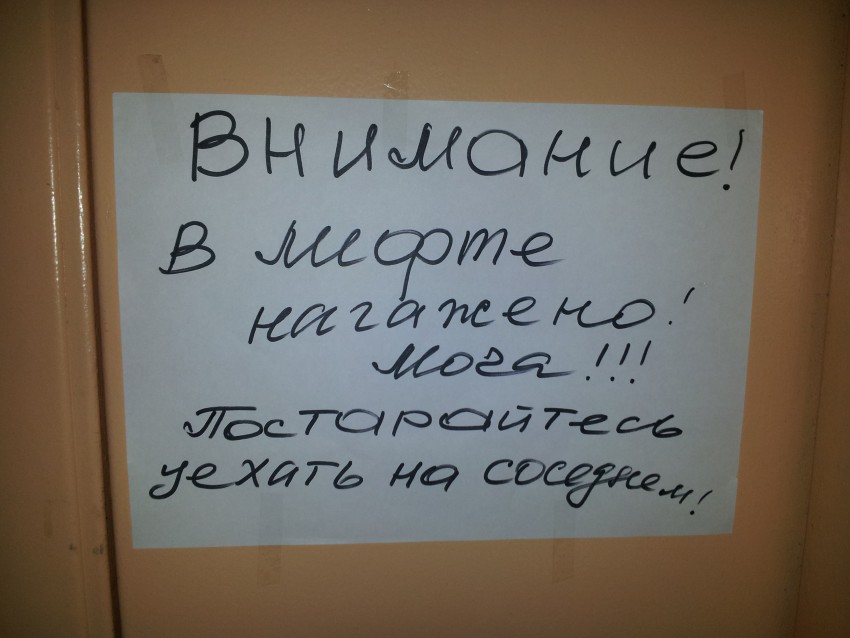 Внимание!
В лифте
нагажено!
моча!!!
Постарайтесь
уехать на соседнем!